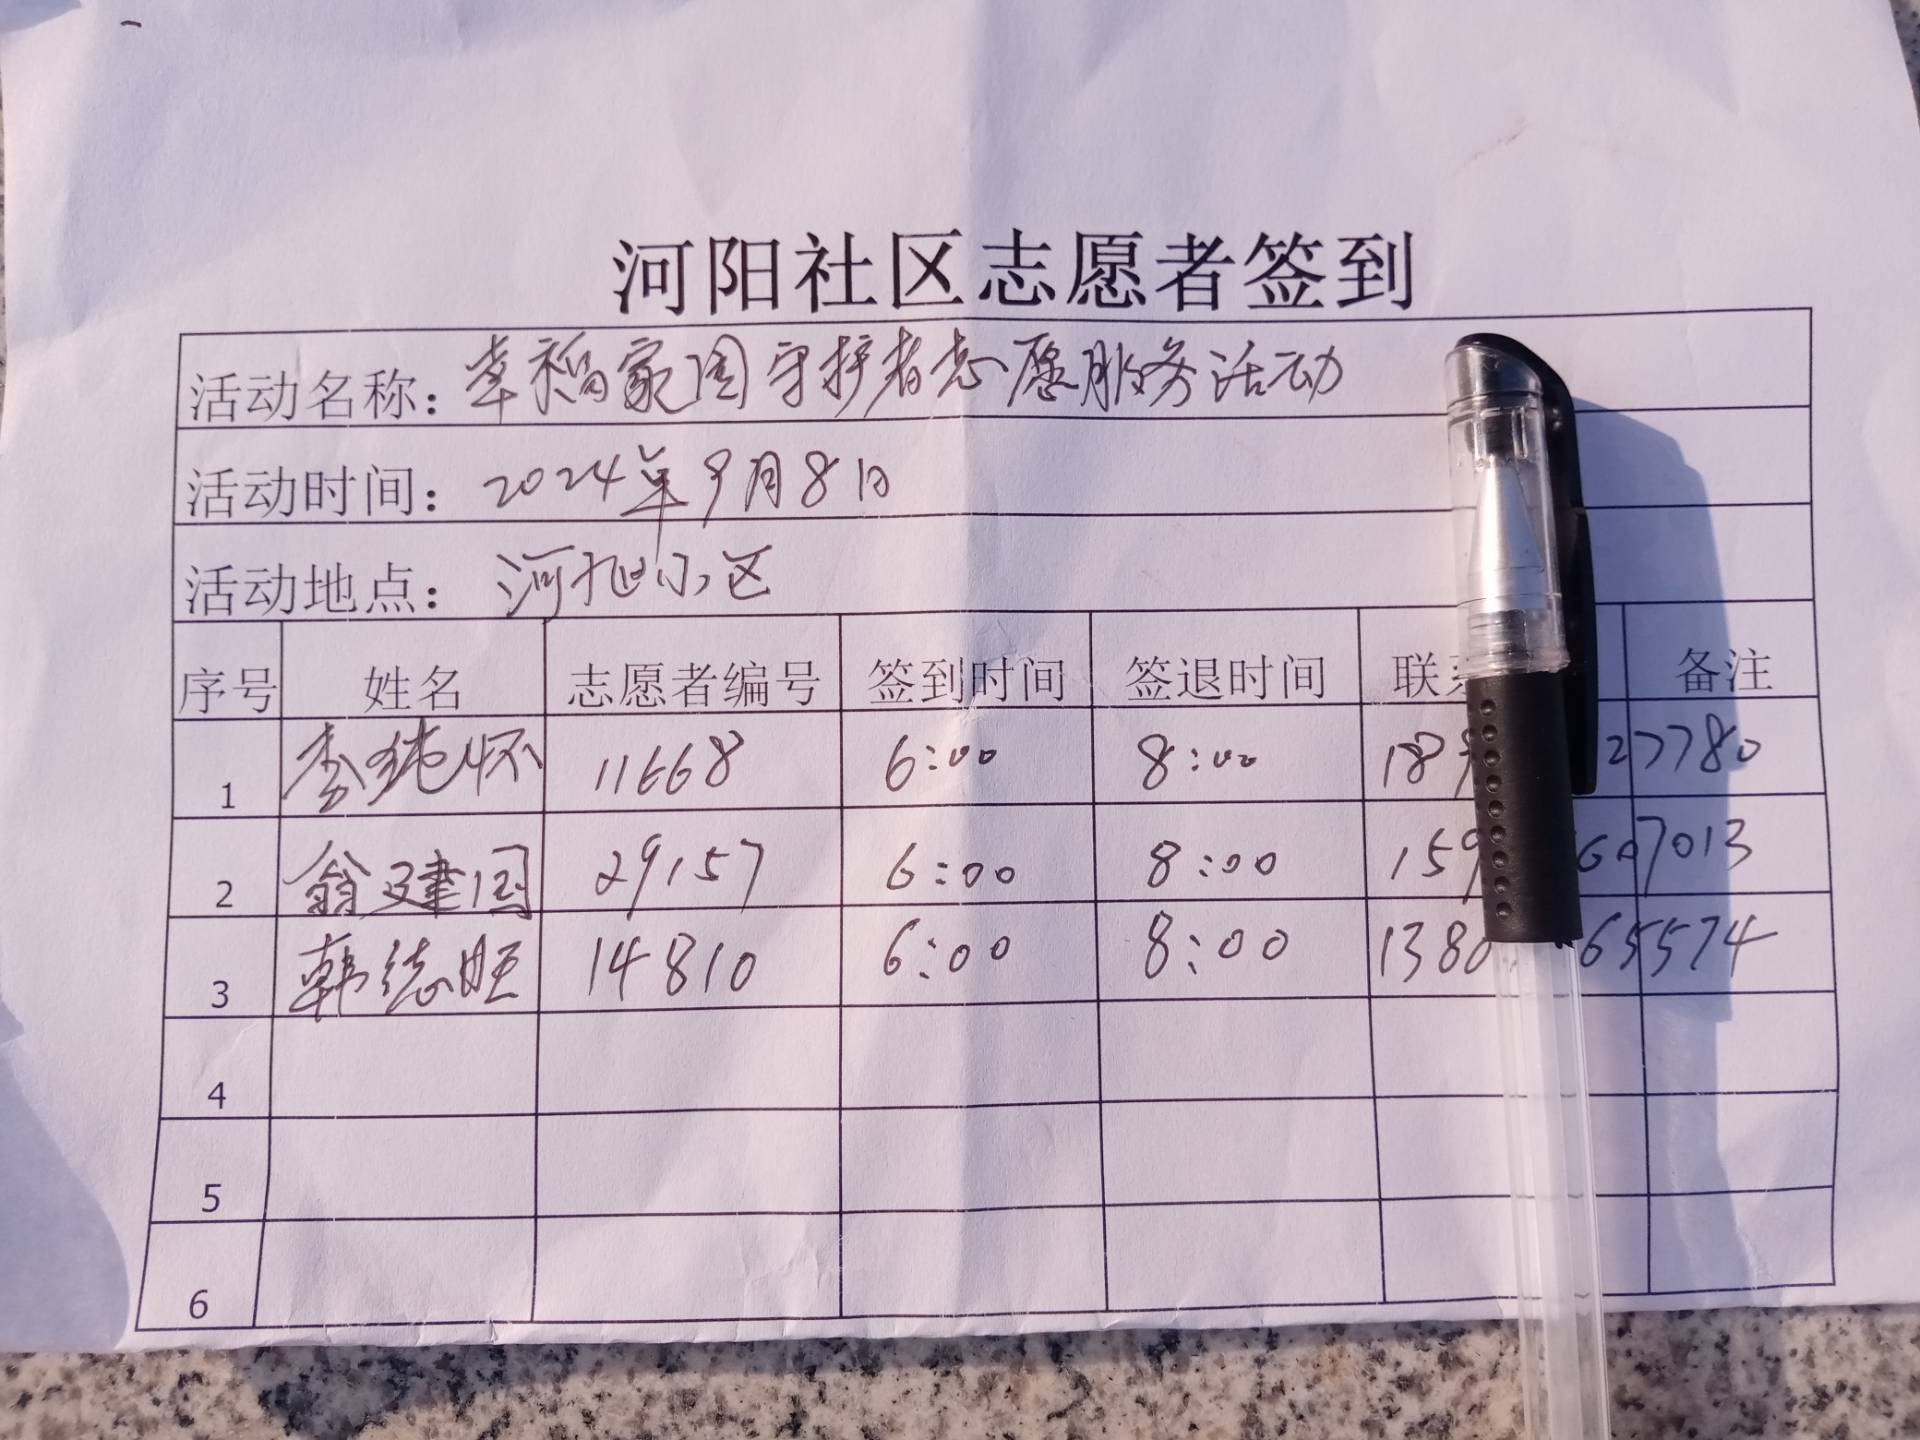 河阳社区志愿者签到
活动名称：幸福家园守护者志愿服务活动
活动时间：2024年9月8日
活动地点：河旭小区
序号 姓名 志愿者编号 签到时间 签退时间 联系 备注
1 李纯怀 11668 6:00 8:00 18 27780
2 翁建国 29157 6:00 8:00 159 607013
3 韩德旺 14810 6:00 8:00 1380 65574
4
5
6